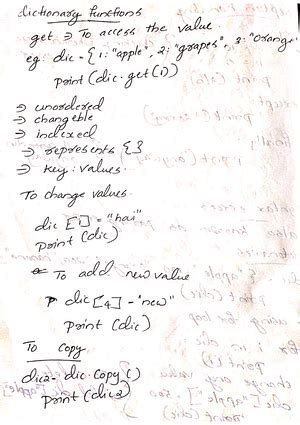 dictionary functions
get ⇒ To access the value
eg: dic = {1: "apple", 2: "grapes", 3: "orange"
print (dic.get(1))
⇒ unordered
⇒ changeble
⇒ indexed
⇒ represents { }
⇒ key: values.
To change values.
dic [1] = "hai"
print (dic)
To add new value
dic [4] = "new"
print (dic)
To copy
dic2 = dic.copy()
print (dic2)